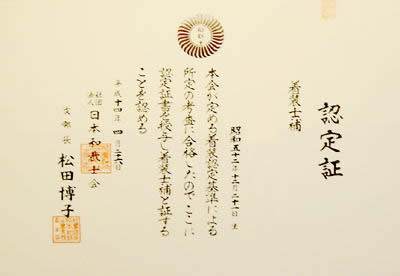 認定証
着装士補
昭和五十二年十二月二十一日 生
本会が定める着装認定基準による
所定の考査に合格したのでここに
認定証書を授与し着装士補と証する
ことを認める
平成十四年 四月二十六日
社団法人 日本和装士会
支部長 松田博子